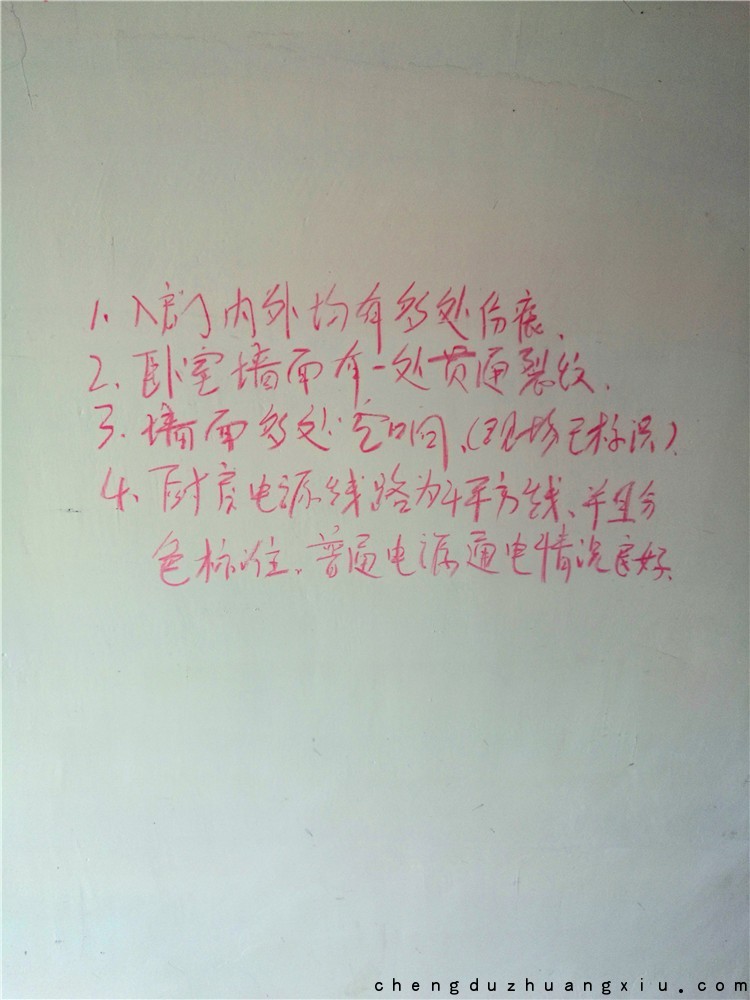 1、入户门内外均有多处伤痕、
2、卧室墙面有一处贯通裂纹、
3、墙面多处空响、(现场已标识)
4、厨房电源线路为4平方线、并且分
色标准、普通电源通电情况良好、
chengduzhuangxiu.com